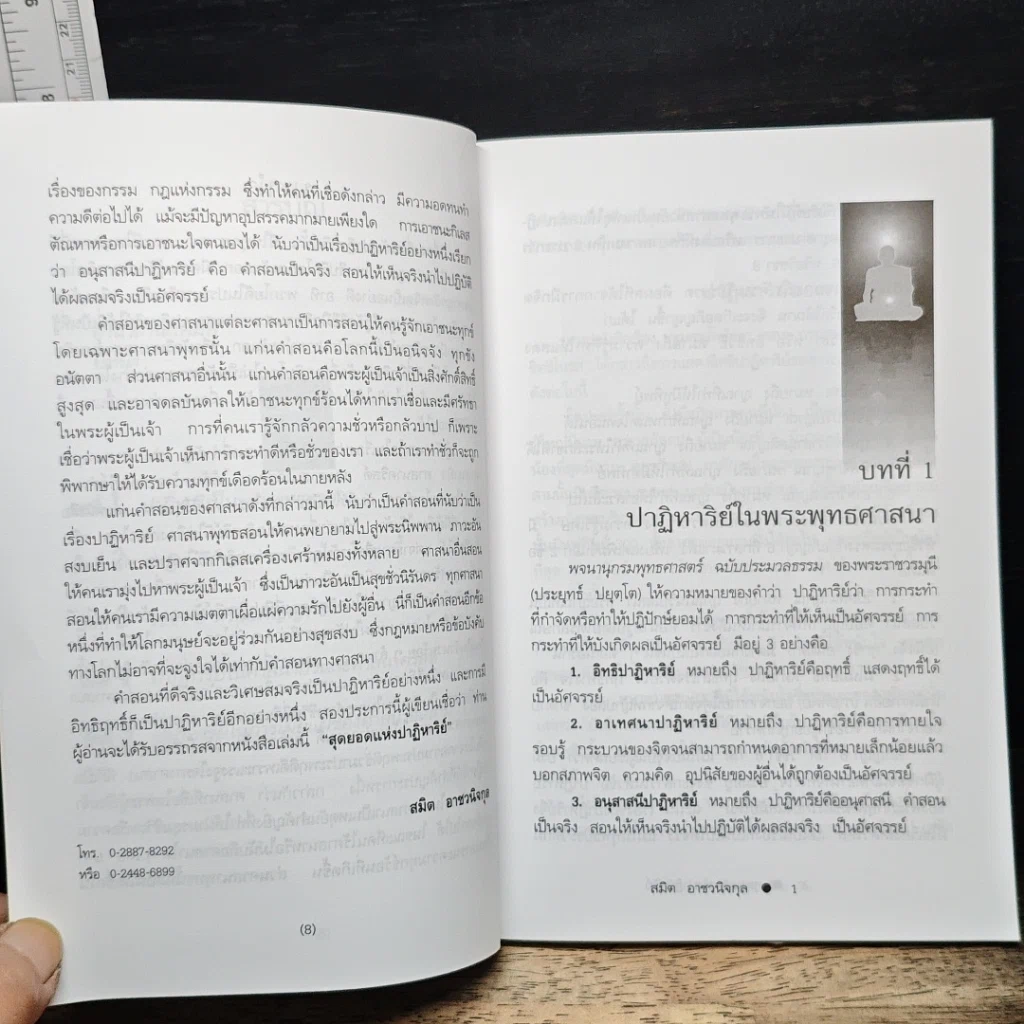 เรื่องของกรรม กฎแห่งกรรม ซึ่งทำให้คนที่เชื่อดังกล่าว มีความอดทนทำ
ความดีต่อไปได้ แม้จะมีปัญหาอุปสรรคมากมายเพียงใด การเอาชนะกิเลส
ตัณหาหรือการเอาชนะใจตนเองได้ นับว่าเป็นเรื่องปาฏิหาริย์อย่างหนึ่งเรียก
ว่า อนุสาสนีปาฏิหาริย์ คือ คำสอนเป็นจริง สอนให้เห็นจริงนำไปปฏิบัติ
ได้ผลสมจริงเป็นอัศจรรย์
คำสอนของศาสนาแต่ละศาสนาเป็นการสอนให้คนรู้จักเอาชนะทุกข์
โดยเฉพาะศาสนาพุทธนั้น แก่นคำสอนคือโลกนี้เป็นอนิจจัง ทุกขัง
อนัตตา ส่วนศาสนาอื่นนั้น แก่นคำสอนคือพระผู้เป็นเจ้าเป็นสิ่งศักดิ์สิทธิ์
สูงสุด และอาจดลบันดาลให้เอาชนะทุกข์ร้อนได้หากเราเชื่อและมีศรัทธา
ในพระผู้เป็นเจ้า การที่คนเรารู้จักกลัวความชั่วหรือกลัวบาป ก็เพราะ
เชื่อว่าพระผู้เป็นเจ้าเห็นการกระทำดีหรือชั่วของเรา และถ้าเราทำชั่วก็จะถูก
พิพากษาให้ได้รับความทุกข์เดือดร้อนในภายหลัง
แก่นคำสอนของศาสนาดังที่กล่าวมานี้ นับว่าเป็นคำสอนที่นับว่าเป็น
เรื่องปาฏิหาริย์ ศาสนาพุทธสอนให้คนพยายามไปสู่พระนิพพาน ภาวะอัน
สงบเย็น และปราศจากกิเลสเครื่องเศร้าหมองทั้งหลาย ศาสนาอื่นสอน
ให้คนเรามุ่งไปหาพระผู้เป็นเจ้า ซึ่งเป็นภาวะอันเป็นสุขชั่วนิรันดร ทุกศาสนา
สอนให้คนเรามีความเมตตาเผื่อแผ่ความรักไปยังผู้อื่น นี่ก็เป็นคำสอนอีกข้อ
หนึ่งที่ทำให้โลกมนุษย์จะอยู่ร่วมกันอย่างสุขสงบ ซึ่งกฎหมายหรือข้อบังคับ
ทางโลกไม่อาจที่จะจูงใจได้เท่ากับคำสอนทางศาสนา
คำสอนที่ดีจริงและวิเศษสมจริงเป็นปาฏิหาริย์อย่างหนึ่ง และการมี
อิทธิฤทธิ์ก็เป็นปาฏิหาริย์อีกอย่างหนึ่ง สองประการนี้ผู้เขียนเชื่อว่า ท่าน
ผู้อ่านจะได้รับอรรถรสจากหนังสือเล่มนี้ “สุดยอดแห่งปาฏิหาริย์”
สมิต อาชวนิจกุล
โทร. 0-2887-8292
หรือ 0-2448-6899
(8)
บทที่ 1
ปาฏิหาริย์ในพระพุทธศาสนา
พจนานุกรมพุทธศาสตร์ ฉบับประมวลธรรม ของพระราชวรมุนี
(ประยุทธ์ ปยุตฺโต) ให้ความหมายของคำว่า ปาฏิหาริย์ว่า การกระทำ
ที่กำจัดหรือทำให้ปฏิปักษ์ยอมได้ การกระทำที่ให้เป็นอัศจรรย์ การ
กระทำที่ให้บังเกิดผลเป็นอัศจรรย์ มีอยู่ 3 อย่างคือ
1. อิทธิปาฏิหาริย์ หมายถึง ปาฏิหาริย์คือฤทธิ์ แสดงฤทธิ์ได้
เป็นอัศจรรย์
2. อาเทศนาปาฏิหาริย์ หมายถึง ปาฏิหาริย์คือการทายใจ
รอบรู้ กระบวนของจิตจนสามารถกำหนดอาการที่หมายเล็กน้อยแล้ว
บอกสภาพจิต ความคิด อุปนิสัยของผู้อื่นได้ถูกต้องเป็นอัศจรรย์
3. อนุสาสนีปาฏิหาริย์ หมายถึง ปาฏิหาริย์คืออนุศาสนี คำสอน
เป็นจริง สอนให้เห็นจริงนำไปปฏิบัติได้ผลสมจริง เป็นอัศจรรย์
สมิต อาชวนิจกุล ● 1
9
8
22
21